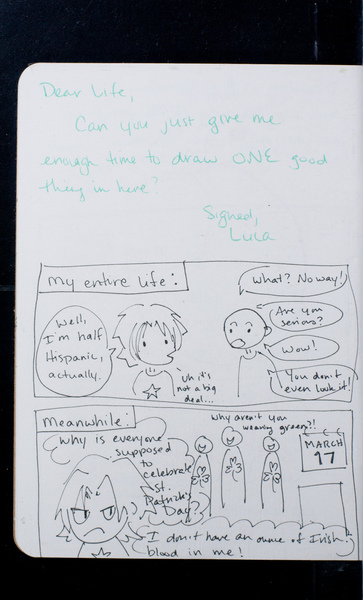 Dear Life,
Can you just give me
enough time to draw ONE good
thing in here?
Signed,
Lula
My entire life:
Well,
I'm half
Hispanic,
actually.
Uh it's
not a big
deal...
What? No way!
Are you
serious?
Wow!
You don't
even look it!
Meanwhile:
Why is everyone
supposed
to
celebrate
St.
Patrick's
Day?
Why aren't you
wearing green?!
MARCH
17
I don't have an ounce of Irish
blood in me!